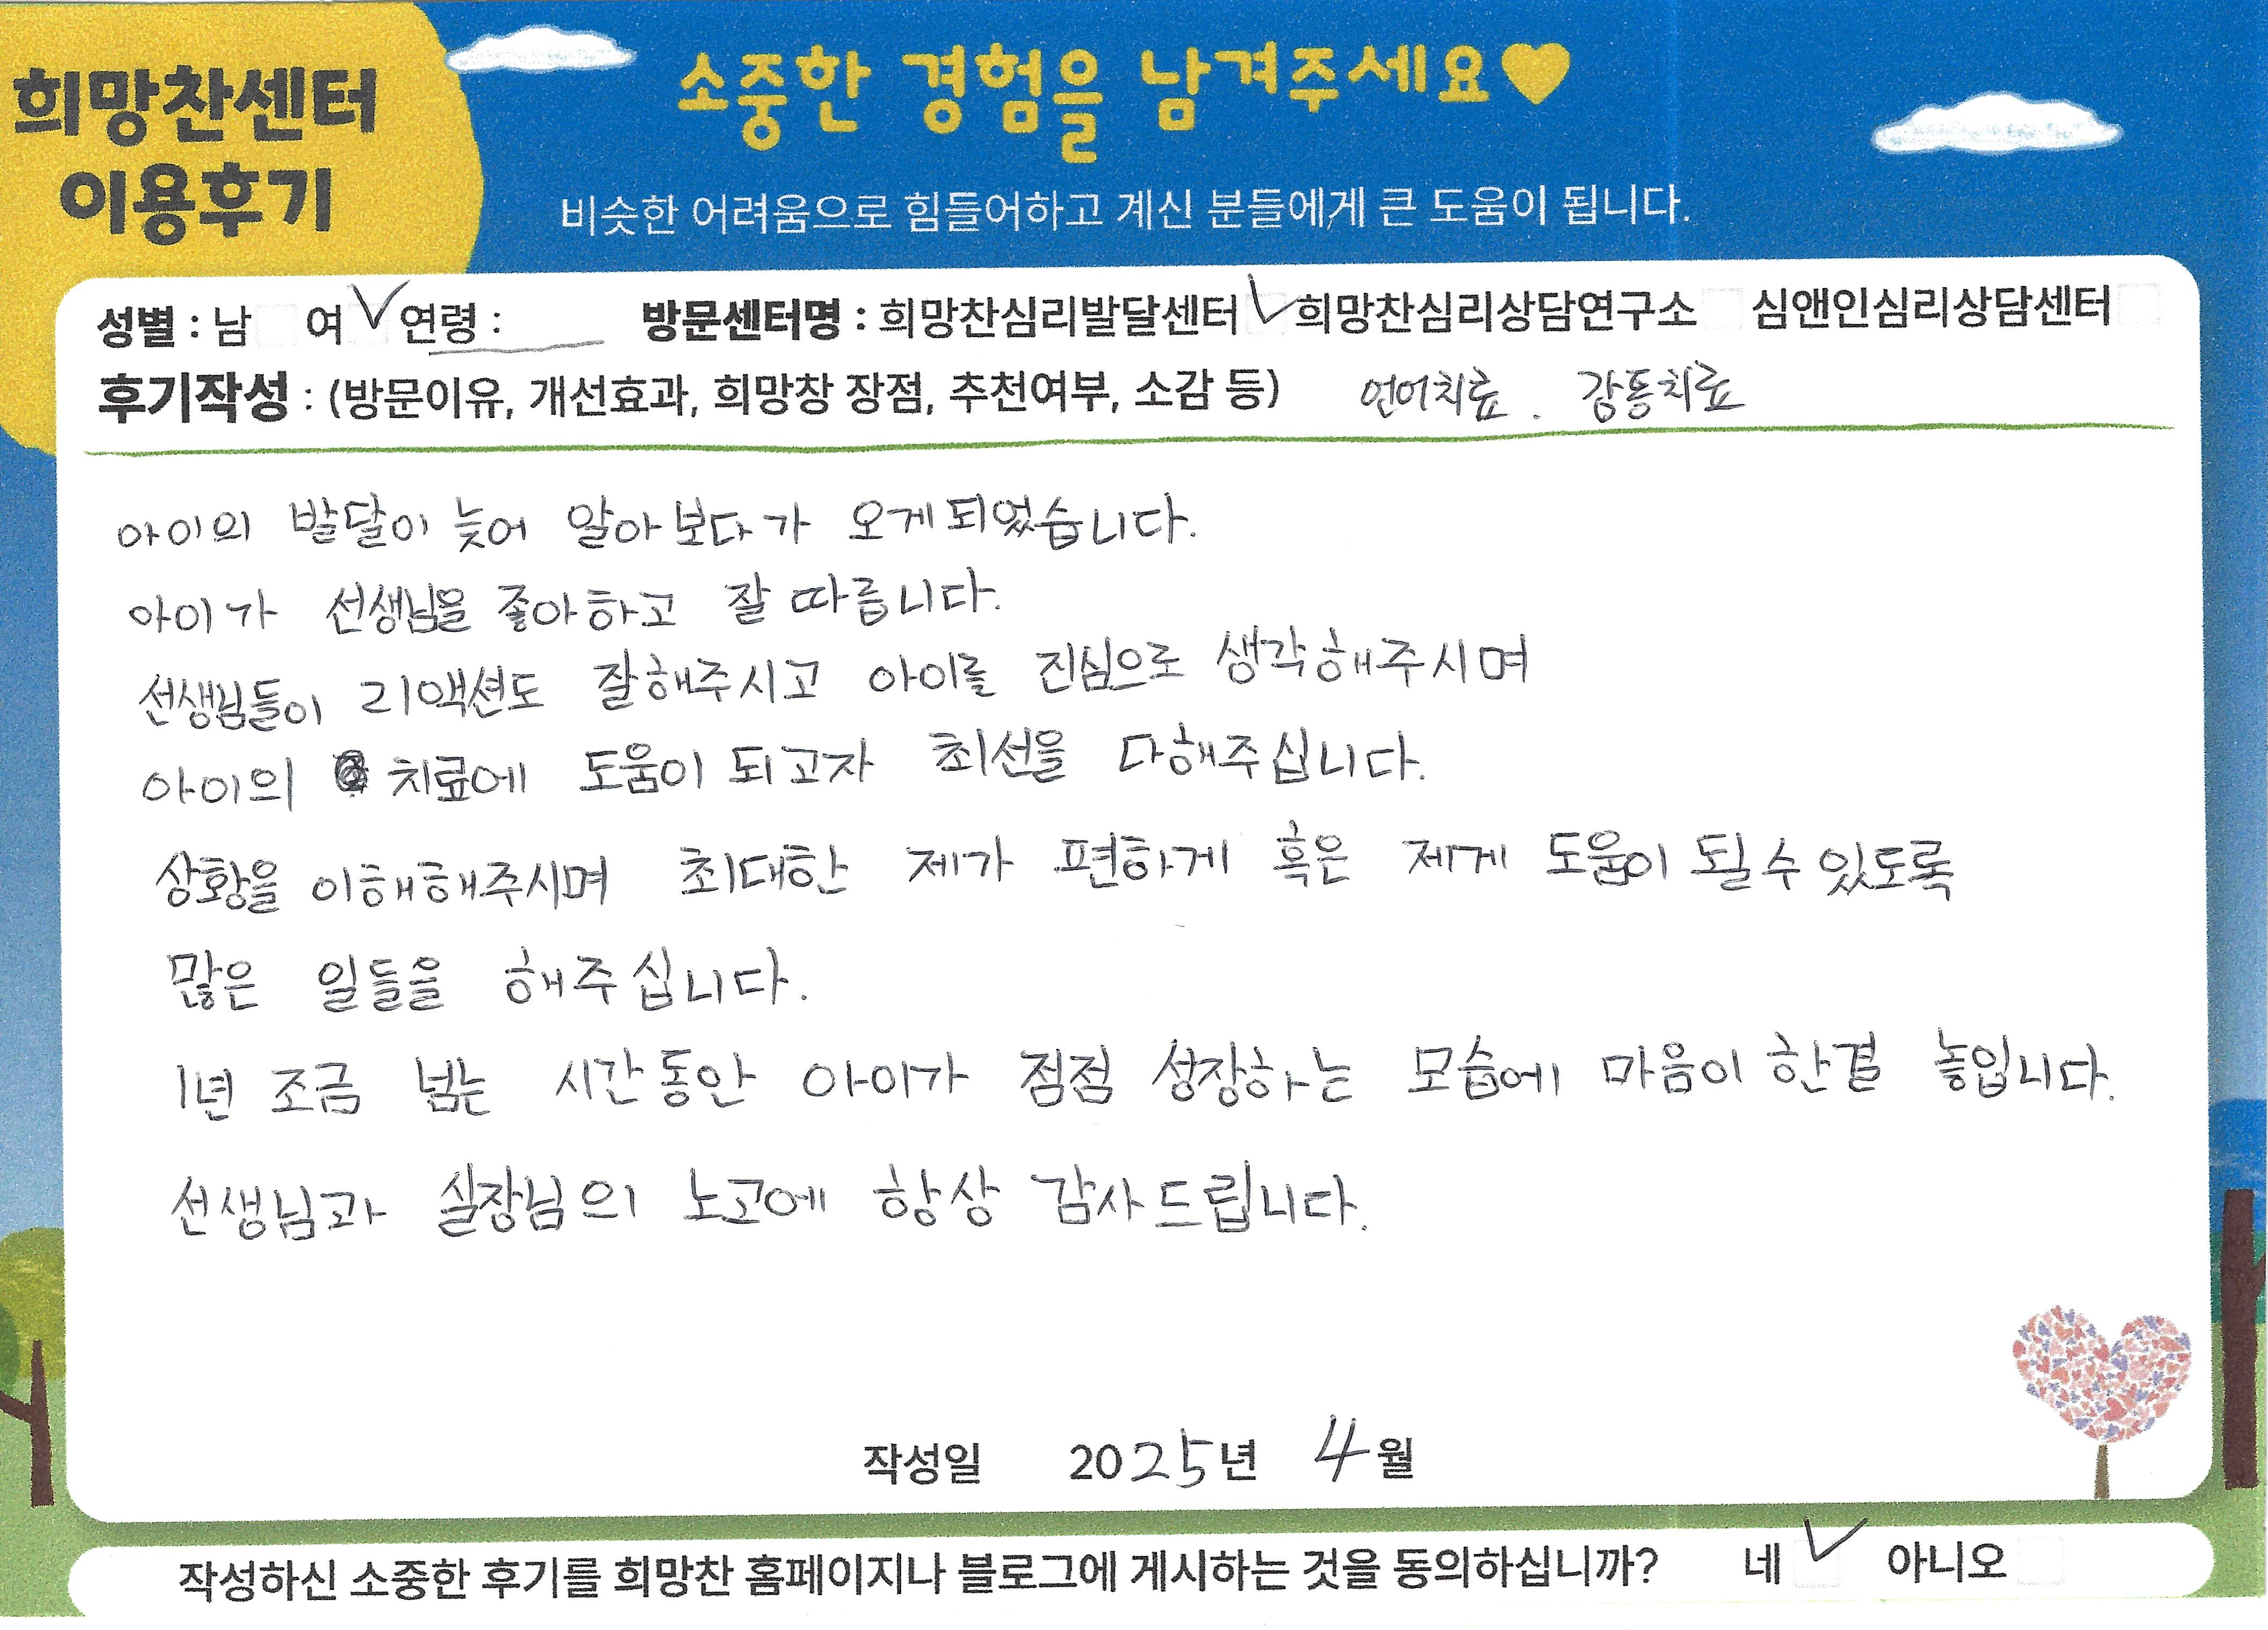 희망찬센터
이용후기
소중한 경험을 남겨주세요♥
비슷한 어려움으로 힘들어하고 계신 분들에게 큰 도움이 됩니다.
성별 : 남 여 ✓ 연령 : 방문센터명 : 희망찬심리발달센터 ✓ 희망찬심리상담연구소 심앤인심리상담센터
후기작성 : (방문이유, 개선효과, 희망창 장점, 추천여부, 소감 등) 언어치료 . 감통치료
아이의 발달이 늦어 알아보다가 오게되었습니다.
아이가 선생님을 좋아하고 잘 따릅니다.
선생님들이 리액션도 잘해주시고 아이를 진심으로 생각해주시며
아이의 치료에 도움이 되고자 최선을 다해주십니다.
상황을 이해해주시며 최대한 제가 편하게 혹은 제게 도움이 될수 있도록
많은 일들을 해주십니다.
1년 조금 넘는 시간동안 아이가 점점 성장하는 모습에 마음이 한결 놓입니다.
선생님과 실장님의 노고에 항상 감사드립니다.
작성일 2025년 4월
작성하신 소중한 후기를 희망찬 홈페이지나 블로그에 게시하는 것을 동의하십니까? 네 ✓ 아니오